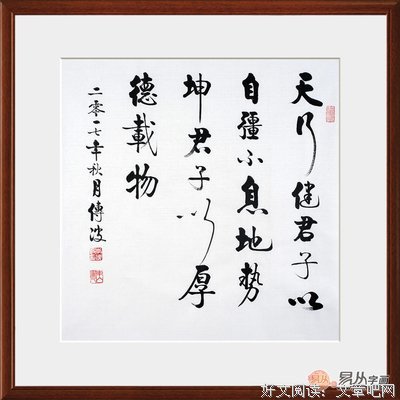 天行健君子以
自彊不息地勢
坤君子以厚
德載物
二零一七年秋月傳波
易从字画
好文阅读：文章吧网